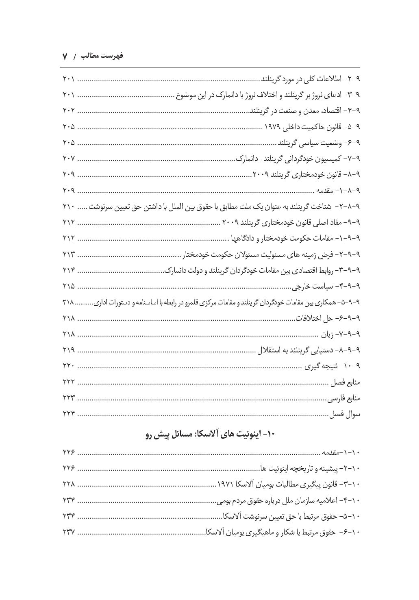 فهرست مطالب / ۷
۹-۲- اطلاعات کلی در مورد گرینلند ۲۰۱
۹-۳- ادعای نروژ بر گرینلند و اختلاف نروژ با دانمارک در این موضوع ۲۰۱
۹-۴- اقتصاد، معدن و صنعت در گرینلند ۲۰۲
۹-۵- قانون حاکمیت داخلی ۱۹۷۹ ۲۰۵
۹-۶- وضعیت سیاسی گرینلند ۲۰۵
۹-۷- کمیسیون خودگردانی گرینلند- دانمارک ۲۰۷
۹-۸- قانون خودمختاری گرینلند ۲۰۰۹ ۲۰۹
۹-۸-۱- مقدمه ۲۰۹
۹-۸-۲- شناخت گرینلند به عنوان یک ملت مطابق با حقوق بین الملل با داشتن حق تعیین سرنوشت ۲۱۰
۹-۹- مفاد اصلی قانون خودمختاری گرینلند ۲۰۰۹ ۲۱۲
۹-۹-۱- مقامات حکومت خودمختار و دادگاهها ۲۱۲
۹-۹-۲- فرض زمینه های مسئولیت مسئولان حکومت خودمختار ۲۱۳
۹-۹-۳- روابط اقتصادی بین مقامات خودگردان گرینلند و دولت دانمارک ۲۱۴
۹-۹-۴- سیاست خارجی ۲۱۵
۹-۹-۵- همکاری بین مقامات خودگردان گرینلند و مقامات مرکزی قلمرو در رابطه با اساسنامه و دستورات اداری ۲۱۸
۹-۹-۶- حل اختلافات ۲۱۸
۹-۹-۷- زبان ۲۱۸
۹-۹-۸- دستیابی گرینلند به استقلال ۲۱۹
۹-۱۰- نتیجه گیری ۲۲۰
منابع فصل ۲۲۲
منابع فارسی ۲۲۳
سوال فصل ۲۲۴
۱۰- اینوئیت های آلاسکا: مسائل پیش رو
۱۰-۱-مقدمه ۲۲۶
۱۰-۲- پیشینه و تاریخچه اینوئیت ها ۲۲۶
۱۰-۳- قانون پیگیری مطالبات بومیان آلاسکا ۱۹۷۱ ۲۲۸
۱۰-۴- اعلامیه سازمان ملل درباره حقوق مردم بومی ۲۳۴
۱۰-۵- حقوق مرتبط با حق تعیین سرنوشت آلاسکا ۲۳۶
۱۰-۶- حقوق مرتبط با شکار و ماهیگیری بومیان آلاسکا ۲۳۷